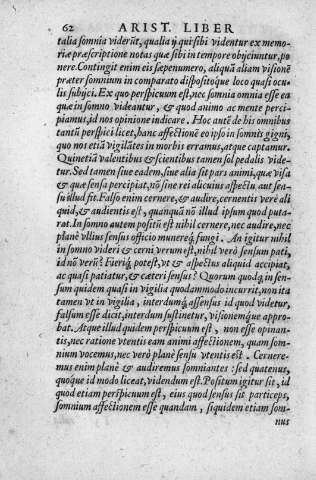 62 ARIST. LIBER
talia somnia viderūt, qualia ÿ qui sibi videntur ex memo-
riæ præscriptione notas quæ sibi in tempore obÿciuntur, po
nere. Contingit enim eis sæpenumero, aliquā aliam visionē
præter somnium in comparato dispositoque loco quasi ocu
lis subÿci. Ex quo perspicuum est, nec somnia omnia esse ea
quæ in somno videantur, & quod animo ac mente perci-
piamus, id nos opinione indicare. Hoc autē de his omnibus
tantū perspici licet, hanc affectionē eo ipso in somnis gigni,
quo nos etiā vigilātes in morbis erramus, atque captamur.
Quinetiā valentibus & scientibus tamen sol pedalis vide-
tur. Sed tamen siue eadem, siue alia sit pars animi, quæ visa
& quæ sensa percipiat, nō sine rei alicuius aspectu aut sen-
su illud fit. Falso enim cernere, & audire, cernentis verè ali
quid, & audientis est, quanquā nō illud ipsum quod puta-
rat. In somno autem positū est nihil cernere, nec audire, nec
planè vllius sensus officio munereq́; fungi. An igitur nihil
in somno videri & cerni verum est, nihil verò sensum pati,
id nō verū? Fieriq́; potest, vt & aspectus aliquid accipiat,
ac quasi patiatur, & cæteri sensus? Quorum quodq́; in sen-
sum quidem quasi in vigilia quodammodo incurrit, non ita
tamen vt in vigilia, interdumq́; assensus id quod videtur,
falsum esse dicit, interdum sustinetur, visionemq́ue appro-
bat. Atque illud quidem perspicuum est, non esse opinan-
tis, nec ratione vtentis eam animi affectionem, quam som-
nium vocemus, nec verò planē sensu vtentis est. Cernere-
mus enim planē & audiremus somniantes: sed quatenus,
quoq́ue id modo liceat, videndum est. Positum igitur sit, id
quod etiam perspicuum est, eius quod sensus sit particeps,
somnium affectionem esse quandam, siquidem etiam som-
nus